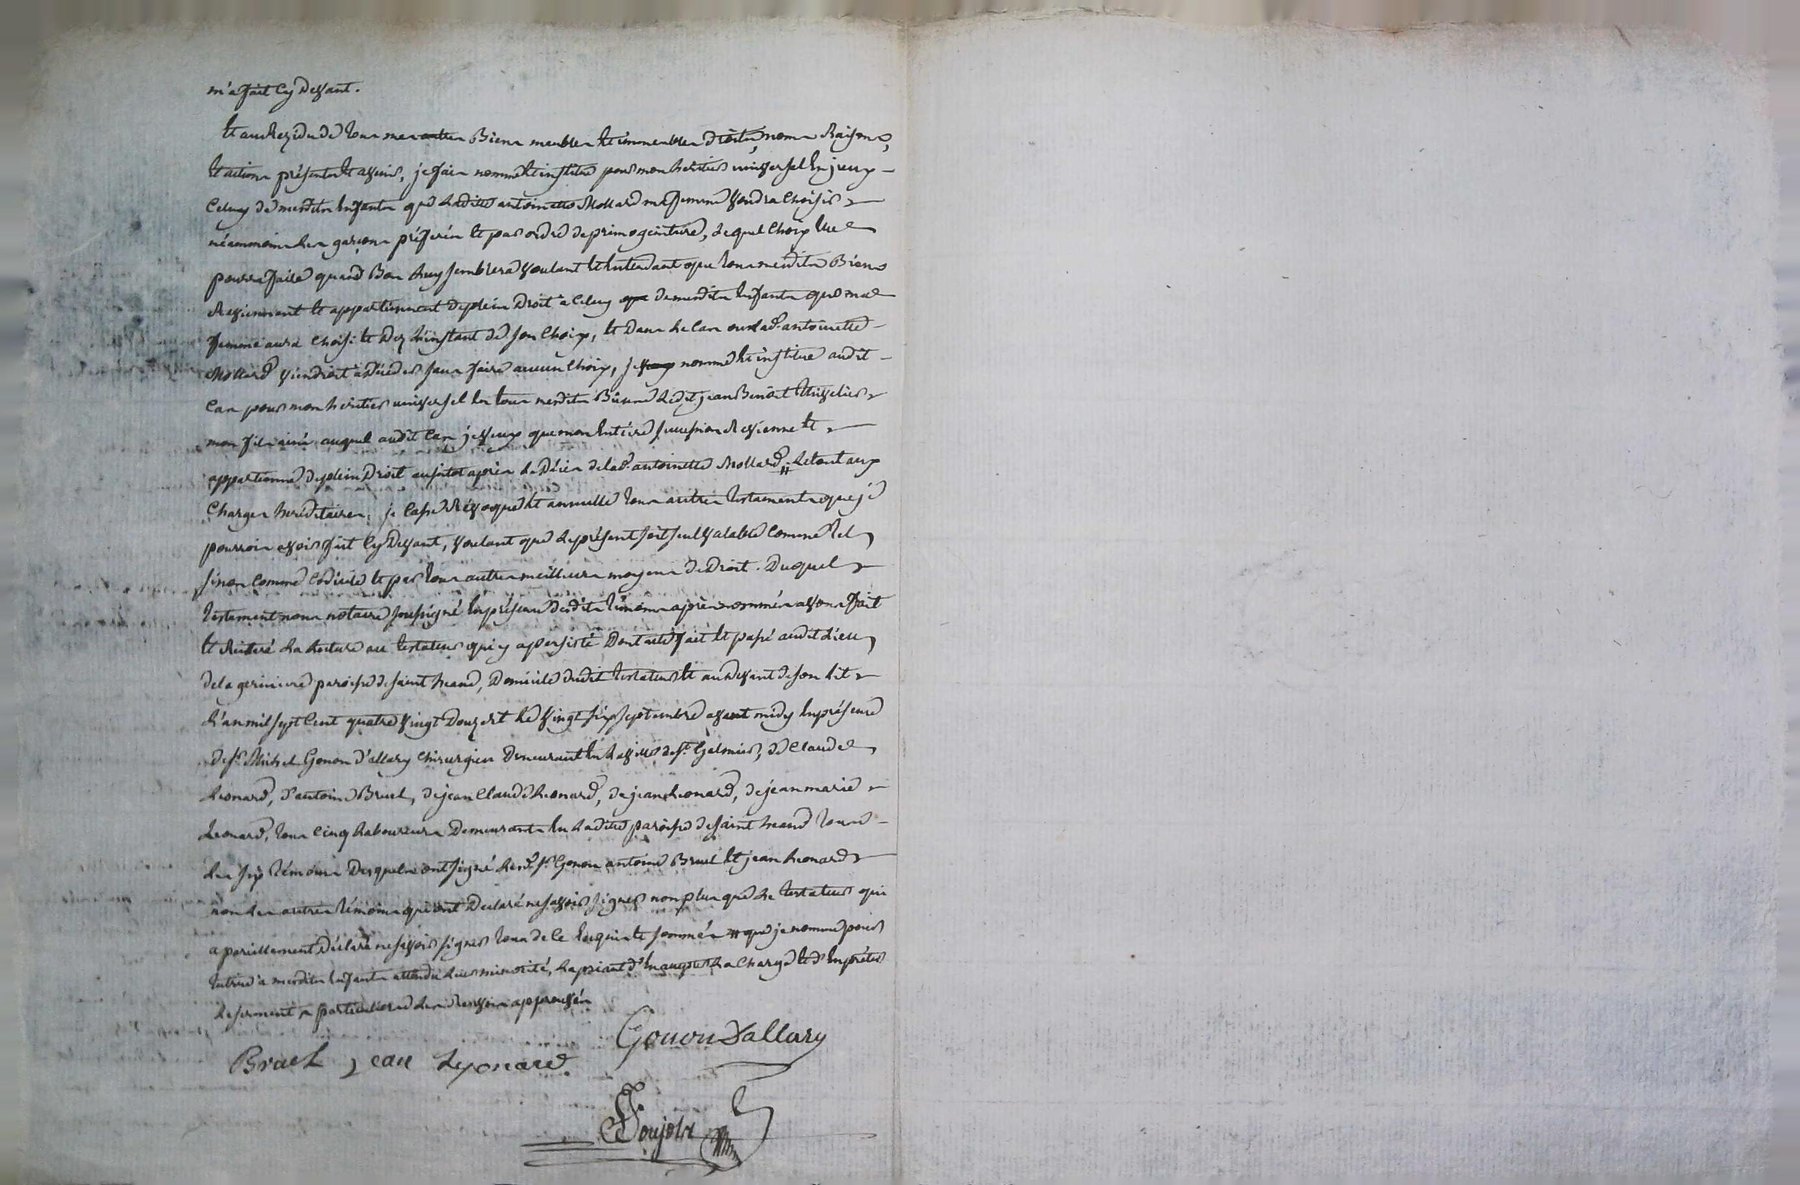 m'a fait cy devant.
et au Rezidu de tous mes autres Biens meubles et immeubles droits, noms Raisons,
et actions présents et avenir, je fais nomme et institue pour mon heritier universel en jceux
celuy de mesdits enfants que ladite antoinette Mollard ma femme voudra choisir
néammoins les garçons préferés et par ordre de primogéniture, lequel choix elle
pourra faire quand Bon luy semblera voulant et entendant que tous mesdits Biens
Reviennent et appartiennent de plein Droit a celuy que de mesdits enfants que ma
femme aura choisi et Dez l'instant de son choix, et dans le cas ou lad. antoinette
Mollard viendroit a décéder sans faire aucun choix, je nomme et institue audit
cas pour mon héritier universel en tous mesdits Biens ledit jean Benoit
mon fils ainé auquel audit cas je veux que mon entière succession Revienne et
appartienne de plein Droit aussitot après le Décès de lad. antoinette Mollard, le tout aux
charges héréditaires. je casse Révoque et annulle tous autres testaments que je
pourrois avoir fait cy Devant, voulant que le présent soit seul valable comme tel,
sinon comme codicile et par tous autres meilleurs moyens de Droit. Duquel
testament nous notaire soussigné en présence desdits témoins après nommés avons fait
et Réitéré la lecture au testateur qui y a persisté Dont acte fait et passé audit lieu
de la paroisse de saint heand, Domicile dudit testateur et au Devant de son lit
L'an mil sept cent quatre vingt Douze et le vingt six septembre avant midy en présence
de sr. Michel Gonon d'allary chirurgien Demeurant en la ville de st. Galmier, de Claude
Leonard, d'antoine Bruel, de jean Claude Leonard, de jean Leonard, de jean marie
Leonard, tous cinq Laboureurs Demeurants en ladite paroisse de saint heand tous
les six témoins Desquels ont signé lesd. sr. Gonon antoine Bruel et jean Leonard
non les autres témoins qui ont Déclaré ne savoir signer non plus que le testateur qui
a pareillement Déclaré ne savoir signer tous de ce enquis et sommés que je nomme pour
tutrice a mesdits enfants attendu leur minorité, la priant d'en accepter la charge et d'en préter
le serment
Gonon Dallary
Bruel jean Lyonard.